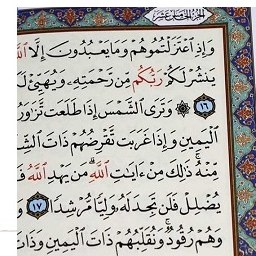 الجزء الخامس عشر
وَإِذِ اعْتَزَلْتُمُوهُمْ وَمَا يَعْبُدُونَ إِلَّا
يَنشُرْ لَكُمْ رَبُّكُم مِّن رَّحْمَتِهِ وَيُهَيِّئْ
١٦ وَتَرَى الشَّمْسَ إِذَا طَلَعَت تَّزَاوَرُ
الْيَمِينِ وَإِذَا غَرَبَت تَّقْرِضُهُمْ ذَاتَ
مِّنْهُ ۚ ذَٰلِكَ مِنْ ءَايَٰتِ اللَّهِ ۗ مَن يَهْدِ اللَّهُ
يُضْلِلْ فَلَن تَجِدَ لَهُ وَلِيًّا مُّرْشِدًا ١٧
وَهُمْ رُقُودٌ ۚ وَنُقَلِّبُهُمْ ذَاتَ الْيَمِينِ وَذَاتَ